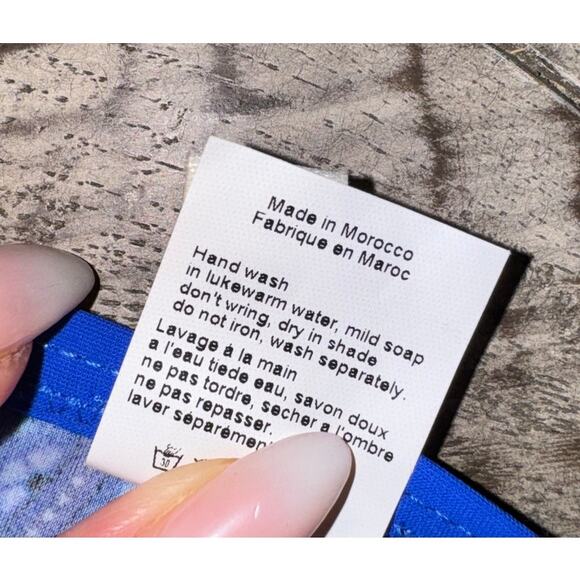 Made in Morocco
Fabrique en Maroc
Hand wash
in lukewarm water, mild soap
don't wring, dry in shade
do not iron, wash separately.
Lavage á la main
a l'eau tiede eau, savon doux
ne pas tordre, secher a l'ombre
ne pas repasser.
laver séparémen
30